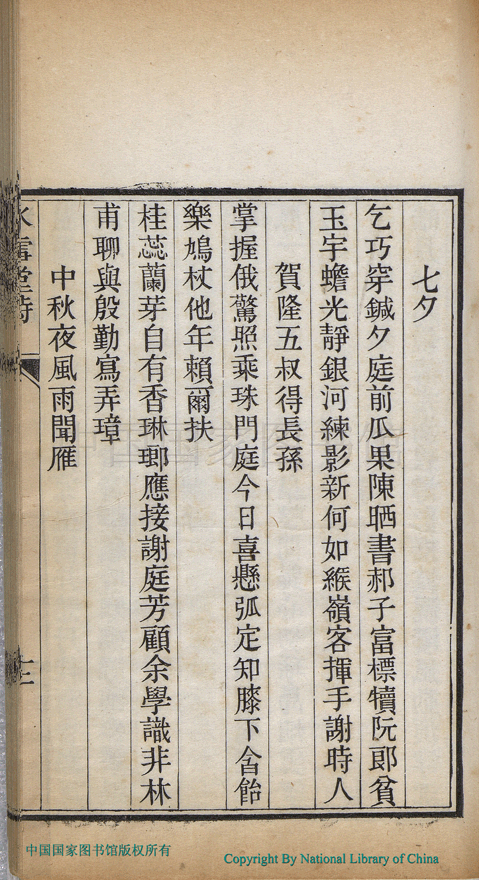 七夕
乞巧穿鍼夕庭前瓜果陳晒書郝子富標犢阮郎貧
玉宇蟾光靜銀河練影新何如緱嶺客揮手謝時人
賀隆五叔得長孫
掌握俄驚照乘珠門庭今日喜懸弧定知膝下含飴
樂鳩杖他年賴爾扶
桂蕊蘭芽自有香琳瑯應接謝庭芳顧余學識非林
甫聊與殷勤寫弄璋
中秋夜風雨聞雁
雪堂詩
中国国家图书馆版权所有
Copyright By National Library of China